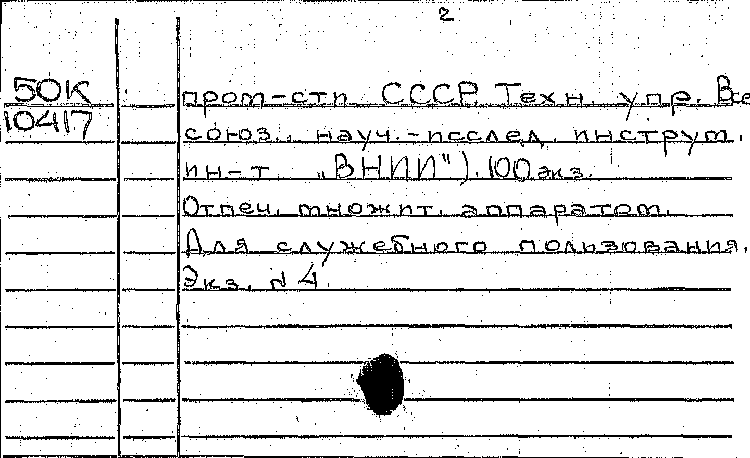 2
50К
10417
пром-сти СССР. Техн. упр. Все
союз. науч.-исслед. инструм.
ин-т „ВНИИ"). 100 экз.
Отпеч. множит. аппаратом.
Для служебного пользования.
Экз. №4.